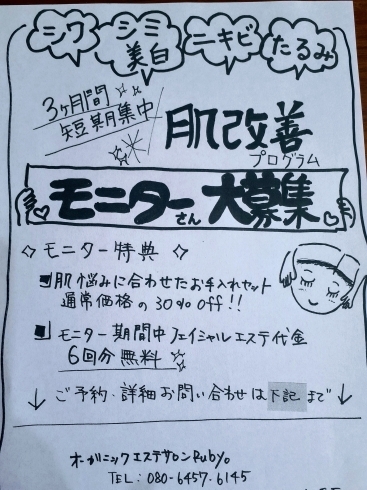 シワ
シミ
美白
ニキビ
たるみ
3ヶ月間
短期集中
肌改善
プログラム
モニターさん大募集
◇ モニター特典 ◇
■肌悩みに合わせたお手入れセット
通常価格の30%off!!
■モニター期間中フェイシャルエステ代金
6回分無料
↓ ご予約、詳細お問い合わせは下記まで ↓
オーガニックエステサロンRuby。
TEL:080-6457-6145